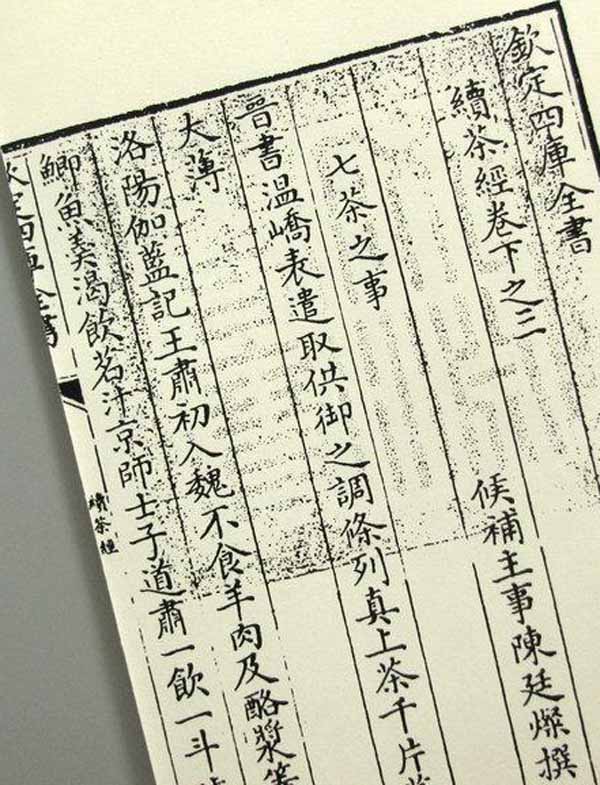 欽定四庫全書
續茶經卷下之三
候補主事陳廷燦撰
七茶之事
晉書溫嶠表遣取供御之調條列真上茶千片
大薄
洛陽伽藍記王肅初入魏不食羊肉及酪漿等
鯽魚羹渴飲茗汁京師士子道肅一飲一斗
續茶經